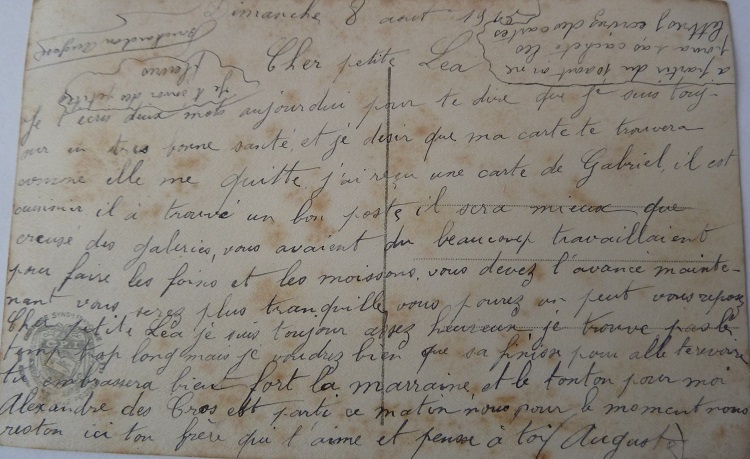 Dimanche 8 aout 191
Cher petite Léa
Je t'ecris deux mots aujourdui pour te dire que je suis touj-
our en tres bonne santé et je désir que ma carte te trouvera
comme elle me quitte, j'ai reçu une carte de Gabriel, il est
cuisinier il à trouvé un bon poste, il sera mieux que
creusé des galeries, vous avaient du beaucoup travaillaient
pour faire les foins et les moissons, vous devez l'avance mainte-
nant vous serez plus tranquille, vous pourez un peut vous repose
Cher petite Léa je suis toujour assez heureux, je trouve pas le
temp trop long mais je voudrez bien que sa finisse pour alle te revoir
tu embrassera bien fort la marraine, et le tonton pour moi
Alexandre des Cros est parti ce matin, nous pour le moment nous
reston ici ton frère qui t'aime et pense à toi (Auguste)
à partir du 10 aout on ne
pourra pas cacheté les
lettres écriver des cartes
Auguste
Je t'envoi des petites
fleurs